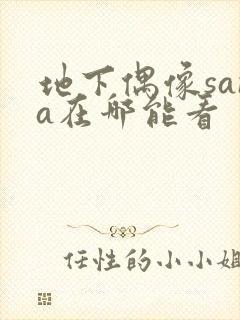 地下偶像sa
a在哪能看
任性的小小姐